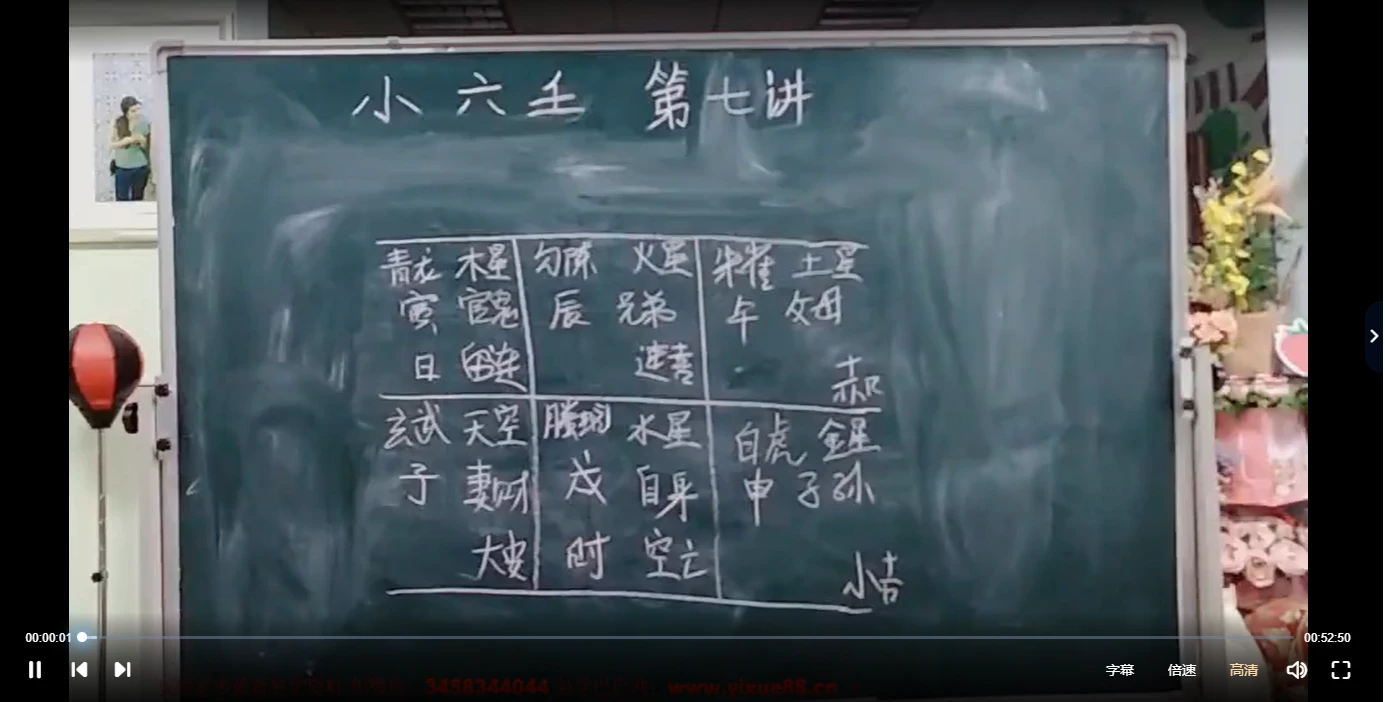 小六壬 第七讲
青龙 木星 勾陈 火星 朱雀 土星
寅 官鬼 辰 兄弟 午 父母
日 留连 速喜 赤口
玄武 天空 螣蛇 水星 白虎 金星
子 妻财 戌 自身 申 子孙
大安 时 空亡 小吉
00:00:01 00:52:50
字幕 倍速 高清
3458344044 www.yixue88.cn